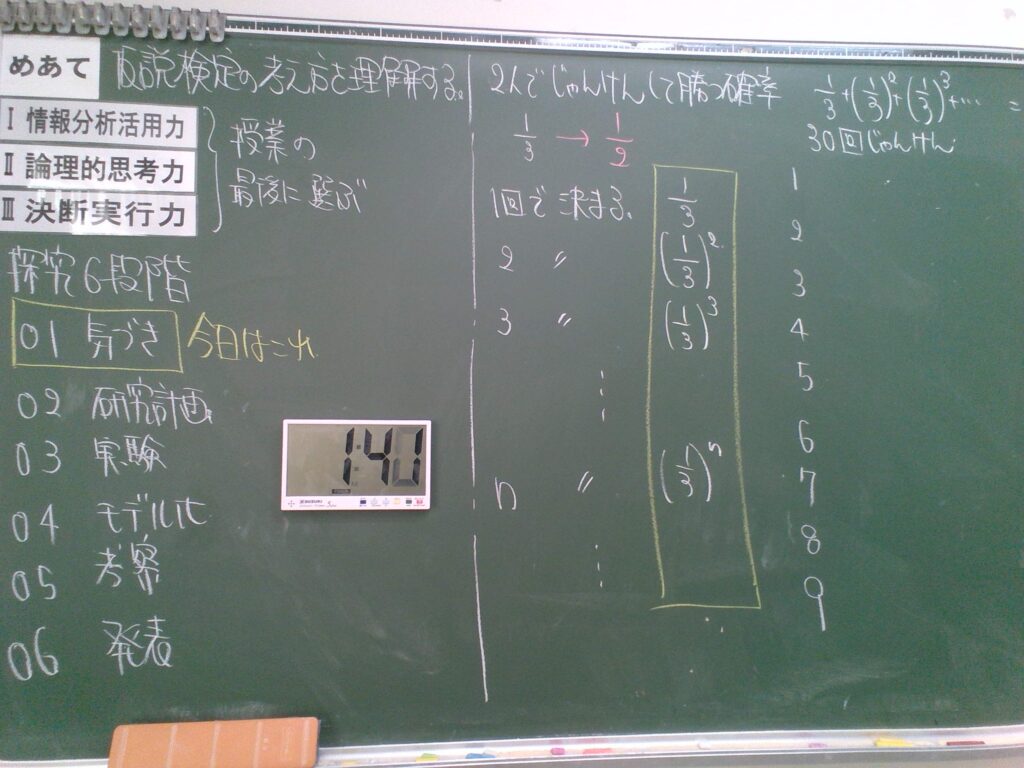 めあて 仮説検定の考え方を理解する。
Ⅰ 情報分析活用力
Ⅱ 論理的思考力
Ⅲ 決断実行力
授業の
最後に選ぶ
探究6段階
01 気づき 今日はこれ
02 研究計画
03 実験
04 モデル化
05 考察
06 発表
1:40
SUZUKI
2人でじゃんけんして勝つ確率
1/3 → 1/2
1回で決まる。 1/3
2 〃 (1/3)^2
3 〃 (1/3)^3
⋮
n 〃 (1/3)^n
⋮
1/3+(1/3)^2+(1/3)^3+… =
30回じゃんけん
1
2
3
4
5
6
7
8
9